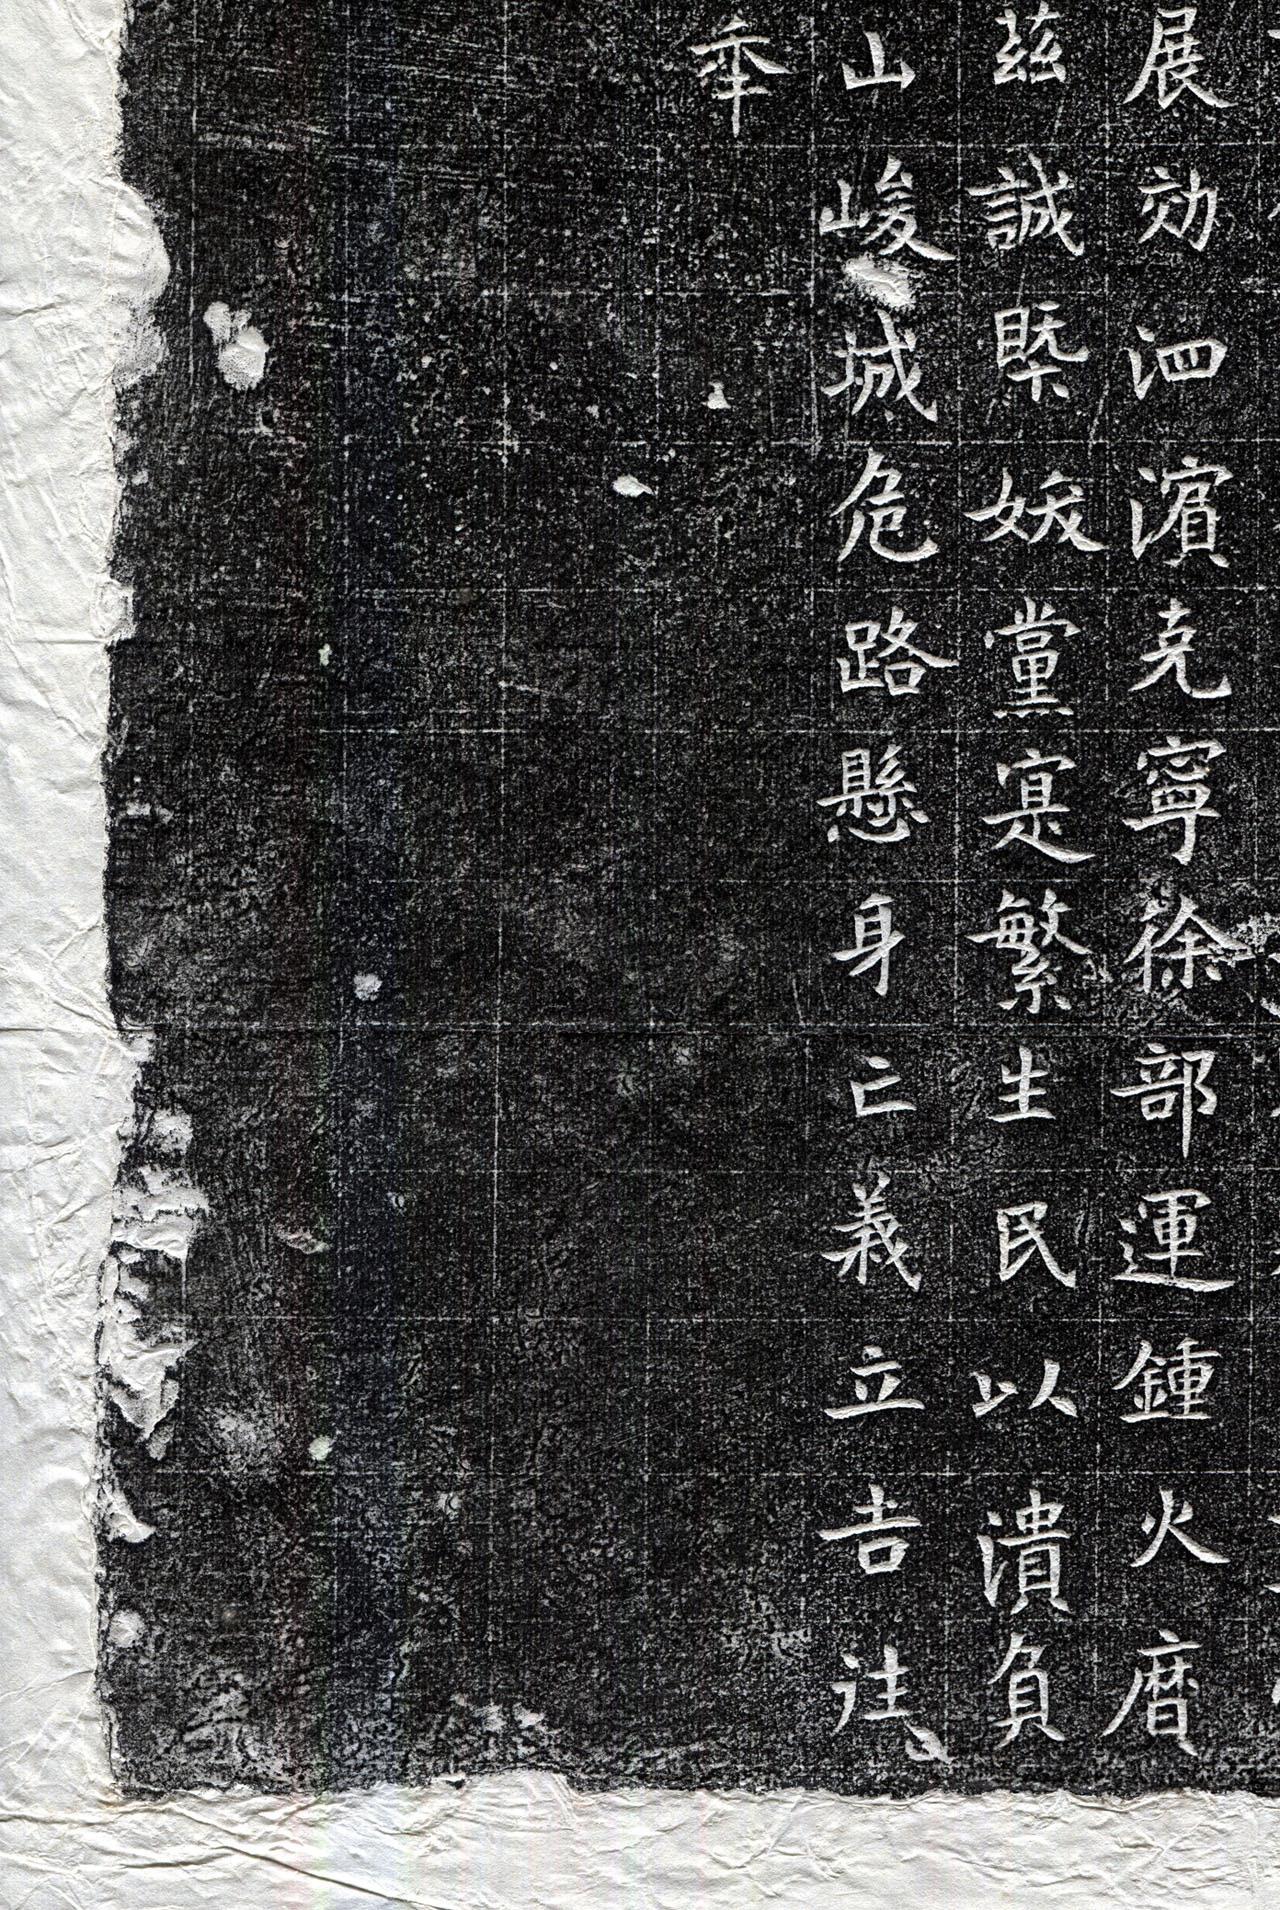 展効泗濱克寧徐部運鍾火暦
茲誠暨妖黨寔繁生民以潰負
山峻城危路懸身亡義立告迬
年